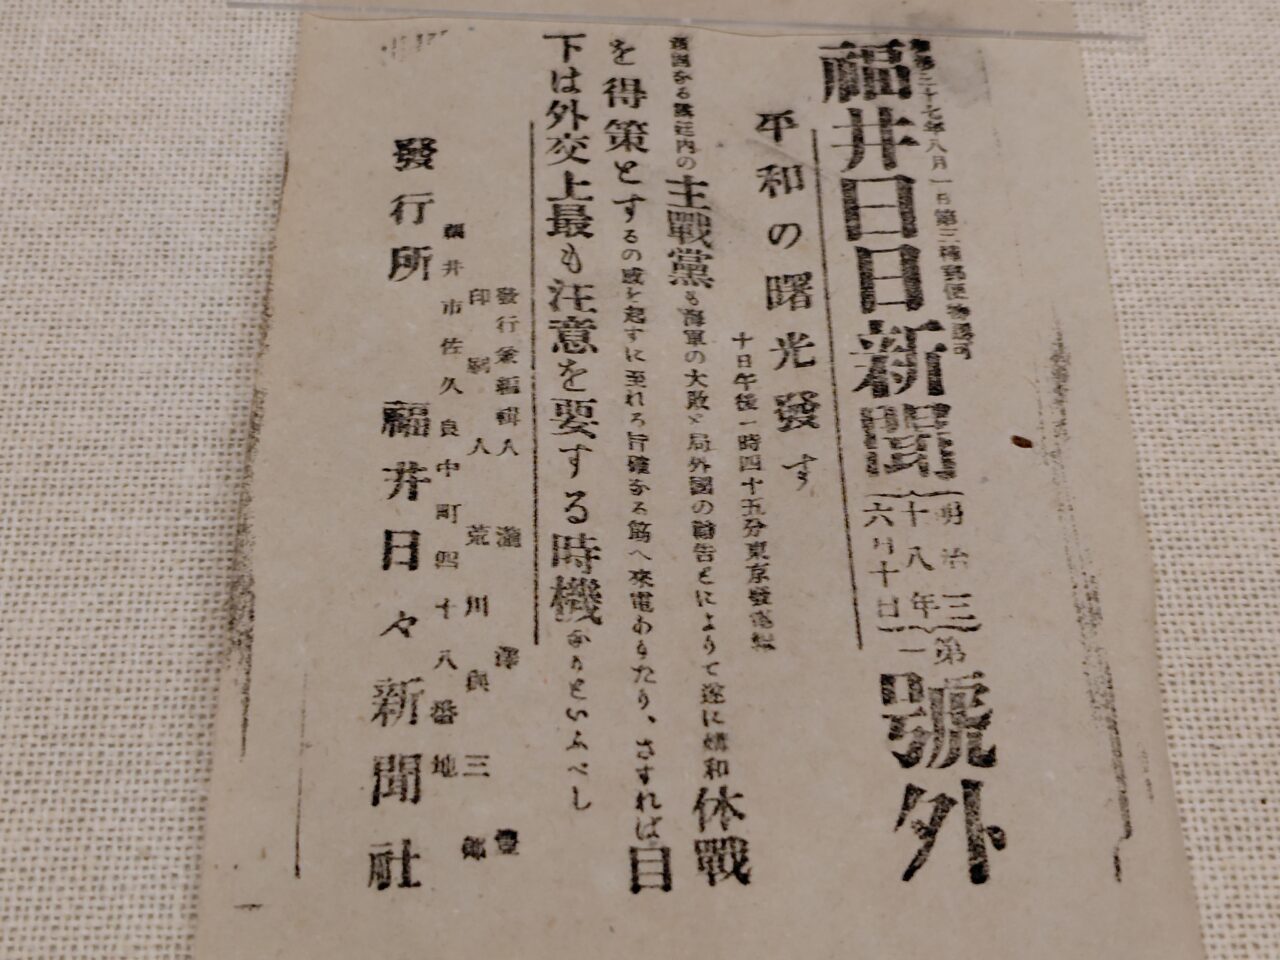 明治三十七年八月一日第三種郵便物認可
福井日日新聞
明治三
十八年
六月十日
第一
號外
平和の曙光發す
十日午後一時四十五分東京發電報
露國なる露廷内の主戰黨も海軍の大敗と局外國の勸告とによりて遂に媾和休戰
を得策とするの議を起すに至れる旨確なる筋へ來電ありたり、さすれば目
下は外交上最も注意を要する時機なりといふべし
發行兼編輯人 瀧澤豊
印刷人 荒川與三郎
福井市佐久良中町四十八番地
發行所 福井日々新聞社